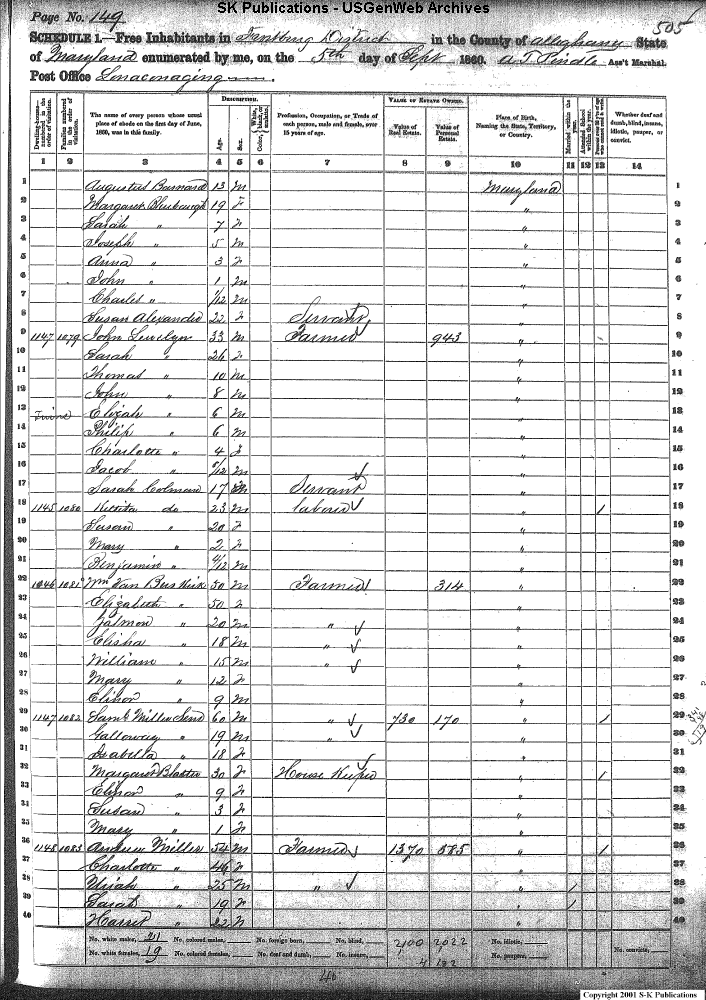 SK Publications - USGenWeb Archives
Page No. 149
505
SCHEDULE 1.—Free Inhabitants in Frostburg District in the County of Alleghany State
of Maryland enumerated by me, on the 5th day of Sept 1860. A. T. Pindle Ass't Marshal.
Post Office Lonaconaging
Dwelling-houses—numbered in the order of visitation.
Families numbered in the order of visitation.
The name of every person whose usual place of abode on the first day of June, 1860, was in this family.
DESCRIPTION.
Age.
Sex.
Color, White, black, or mulatto.
Profession, Occupation, or Trade of each person, male and female, over 15 years of age.
VALUE OF ESTATE OWNED.
Value of Real Estate.
Value of Personal Estate.
Place of Birth, Naming the State, Territory, or Country.
Married within the year.
Attended School within the year.
Persons over 20 y'rs of age who cannot read & write.
Whether deaf and dumb, blind, insane, idiotic, pauper, or convict.
1 2 3 4 5 6 7 8 9 10 11 12 13 14
1 Augustus Barnard 13 M Maryland 1
2 Margaret 19 F " 2
3 Sarah " 7 F " 3
4 Joseph " 5 M " 4
5 Anna " 3 F " 5
6 John " 1 M " 6
7 Charles " 1/12 M " 7
8 Susan Alexander 22 F Servant " 8
9 1147 1079 John Lewelyn 33 M Farmer 943 " 9
10 Sarah " 26 F " 10
11 Thomas " 10 M " 11
12 John " 8 M " 12
13 Twins Elizah " 6 M " 13
14 Philip " 6 M " 14
15 Charlotte " 4 F " 15
16 Jacob " /12 M " 16
17 Sarah Colman 17 Servant " 17
18 1145 1080 do 23 M labored " / 18
19 Susan " 20 F " 19
20 Mary " 2 F " 20
21 Benjamin " 4/12 M " 21
22 1046 1081 Wm Van Buskirk 50 M Farmer 314 " 22
23 Elizabeth " 50 F " 23
24 " 20 M " " 24
25 Elisha " 18 M " " 25
26 William " 15 M " " 26
27 Mary " 12 F " 27
28 Elinor " 9 M " 28
29 1147 1082 Saml Miller Send 60 M " 730 170 " / 29
30 Galloway " 19 M " " 30
31 Isabella " 18 F " 31
32 Margaret 30 F House Keeper " / 32
33 Elinor " 9 F " 33
34 Susan " 3 F " 34
35 Mary " 1 F " 35
36 1148 1083 Andrew Miller 54 M Farmer 1370 585 " / 36
37 Charlotte " 46 F " 37
38 Uriah " 25 M " " / 38
39 Sarah " 19 F " / 39
40 Harriet " 22 F " 40
No. white males, 21 No. colored males, No. foreign born, No. blind, 2100 2022 No. idiotic,
No. white females, 19 No. colored females, No. deaf and dumb, No. insane, No. paupers, No. convicts,
40
Copyright 2001 S-K Publications